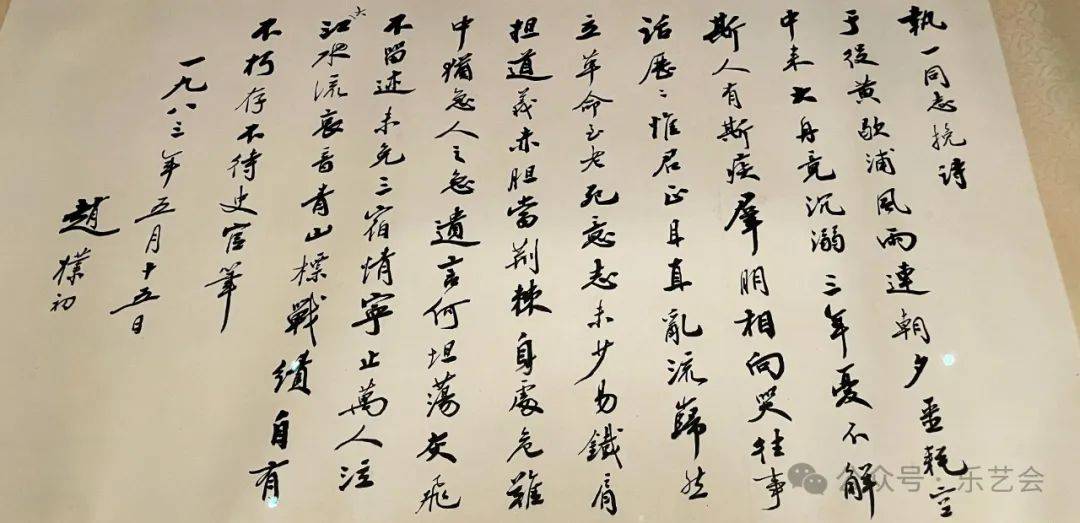 執一同志挽诗
于役黄歇浦風雨連朝夕噩耗空
中来大舟竟沉溺三年憂不解
斯人有斯疾羣朋相向哭往事
话歷〻惟君正且直亂流巋然
立革命至老死意志未少易鐵肩
担道義赤胆當荆棘身處危難
中猶急人之急遺言何坦蕩灰飛
不留迹未免三宿情寧止萬人泣
江水流哀音青山標戰績自有
不朽存不待史官筆
一九八三年五月十五日
趙樸初
公众号·乐艺会